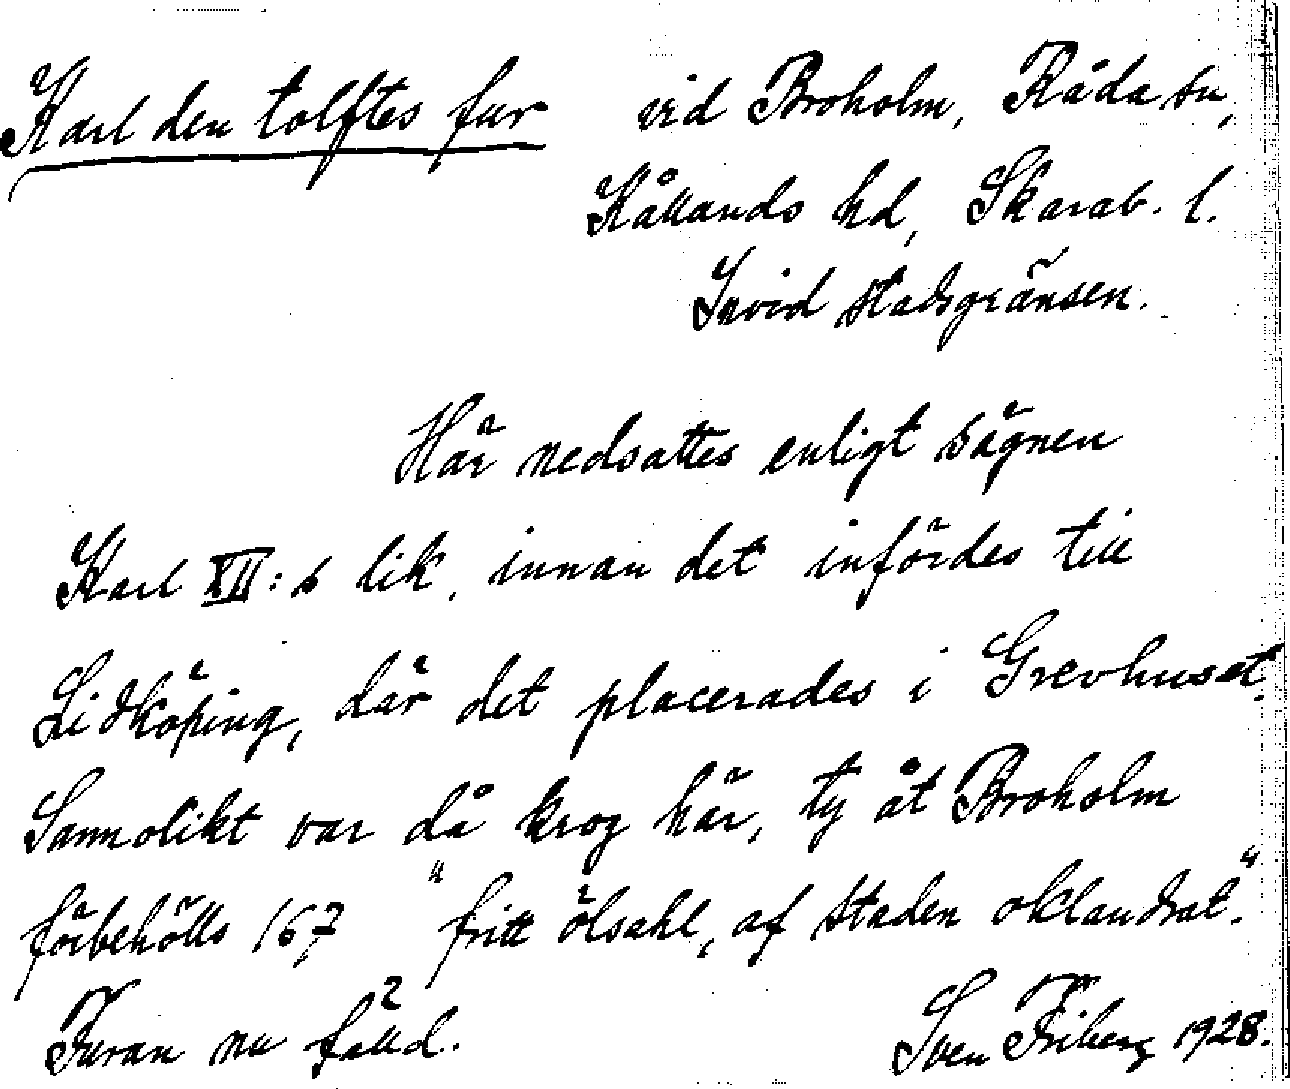 Karl den tolftes fur vid Broholm, Råda sn,
Kållands hd, Skarab. l.
Invid stadsgränsen.
Här nedsattes enligt sägnen
Karl XII:s lik, innan det infördes till
Lidköping, där det placerades i Grevhuset.
Sannolikt var då krog här, ty åt Broholm
förbehölls 167 "fritt ölsahl, af staden oklandrat."
Furan nu fälld. Sven Friberg 1928.